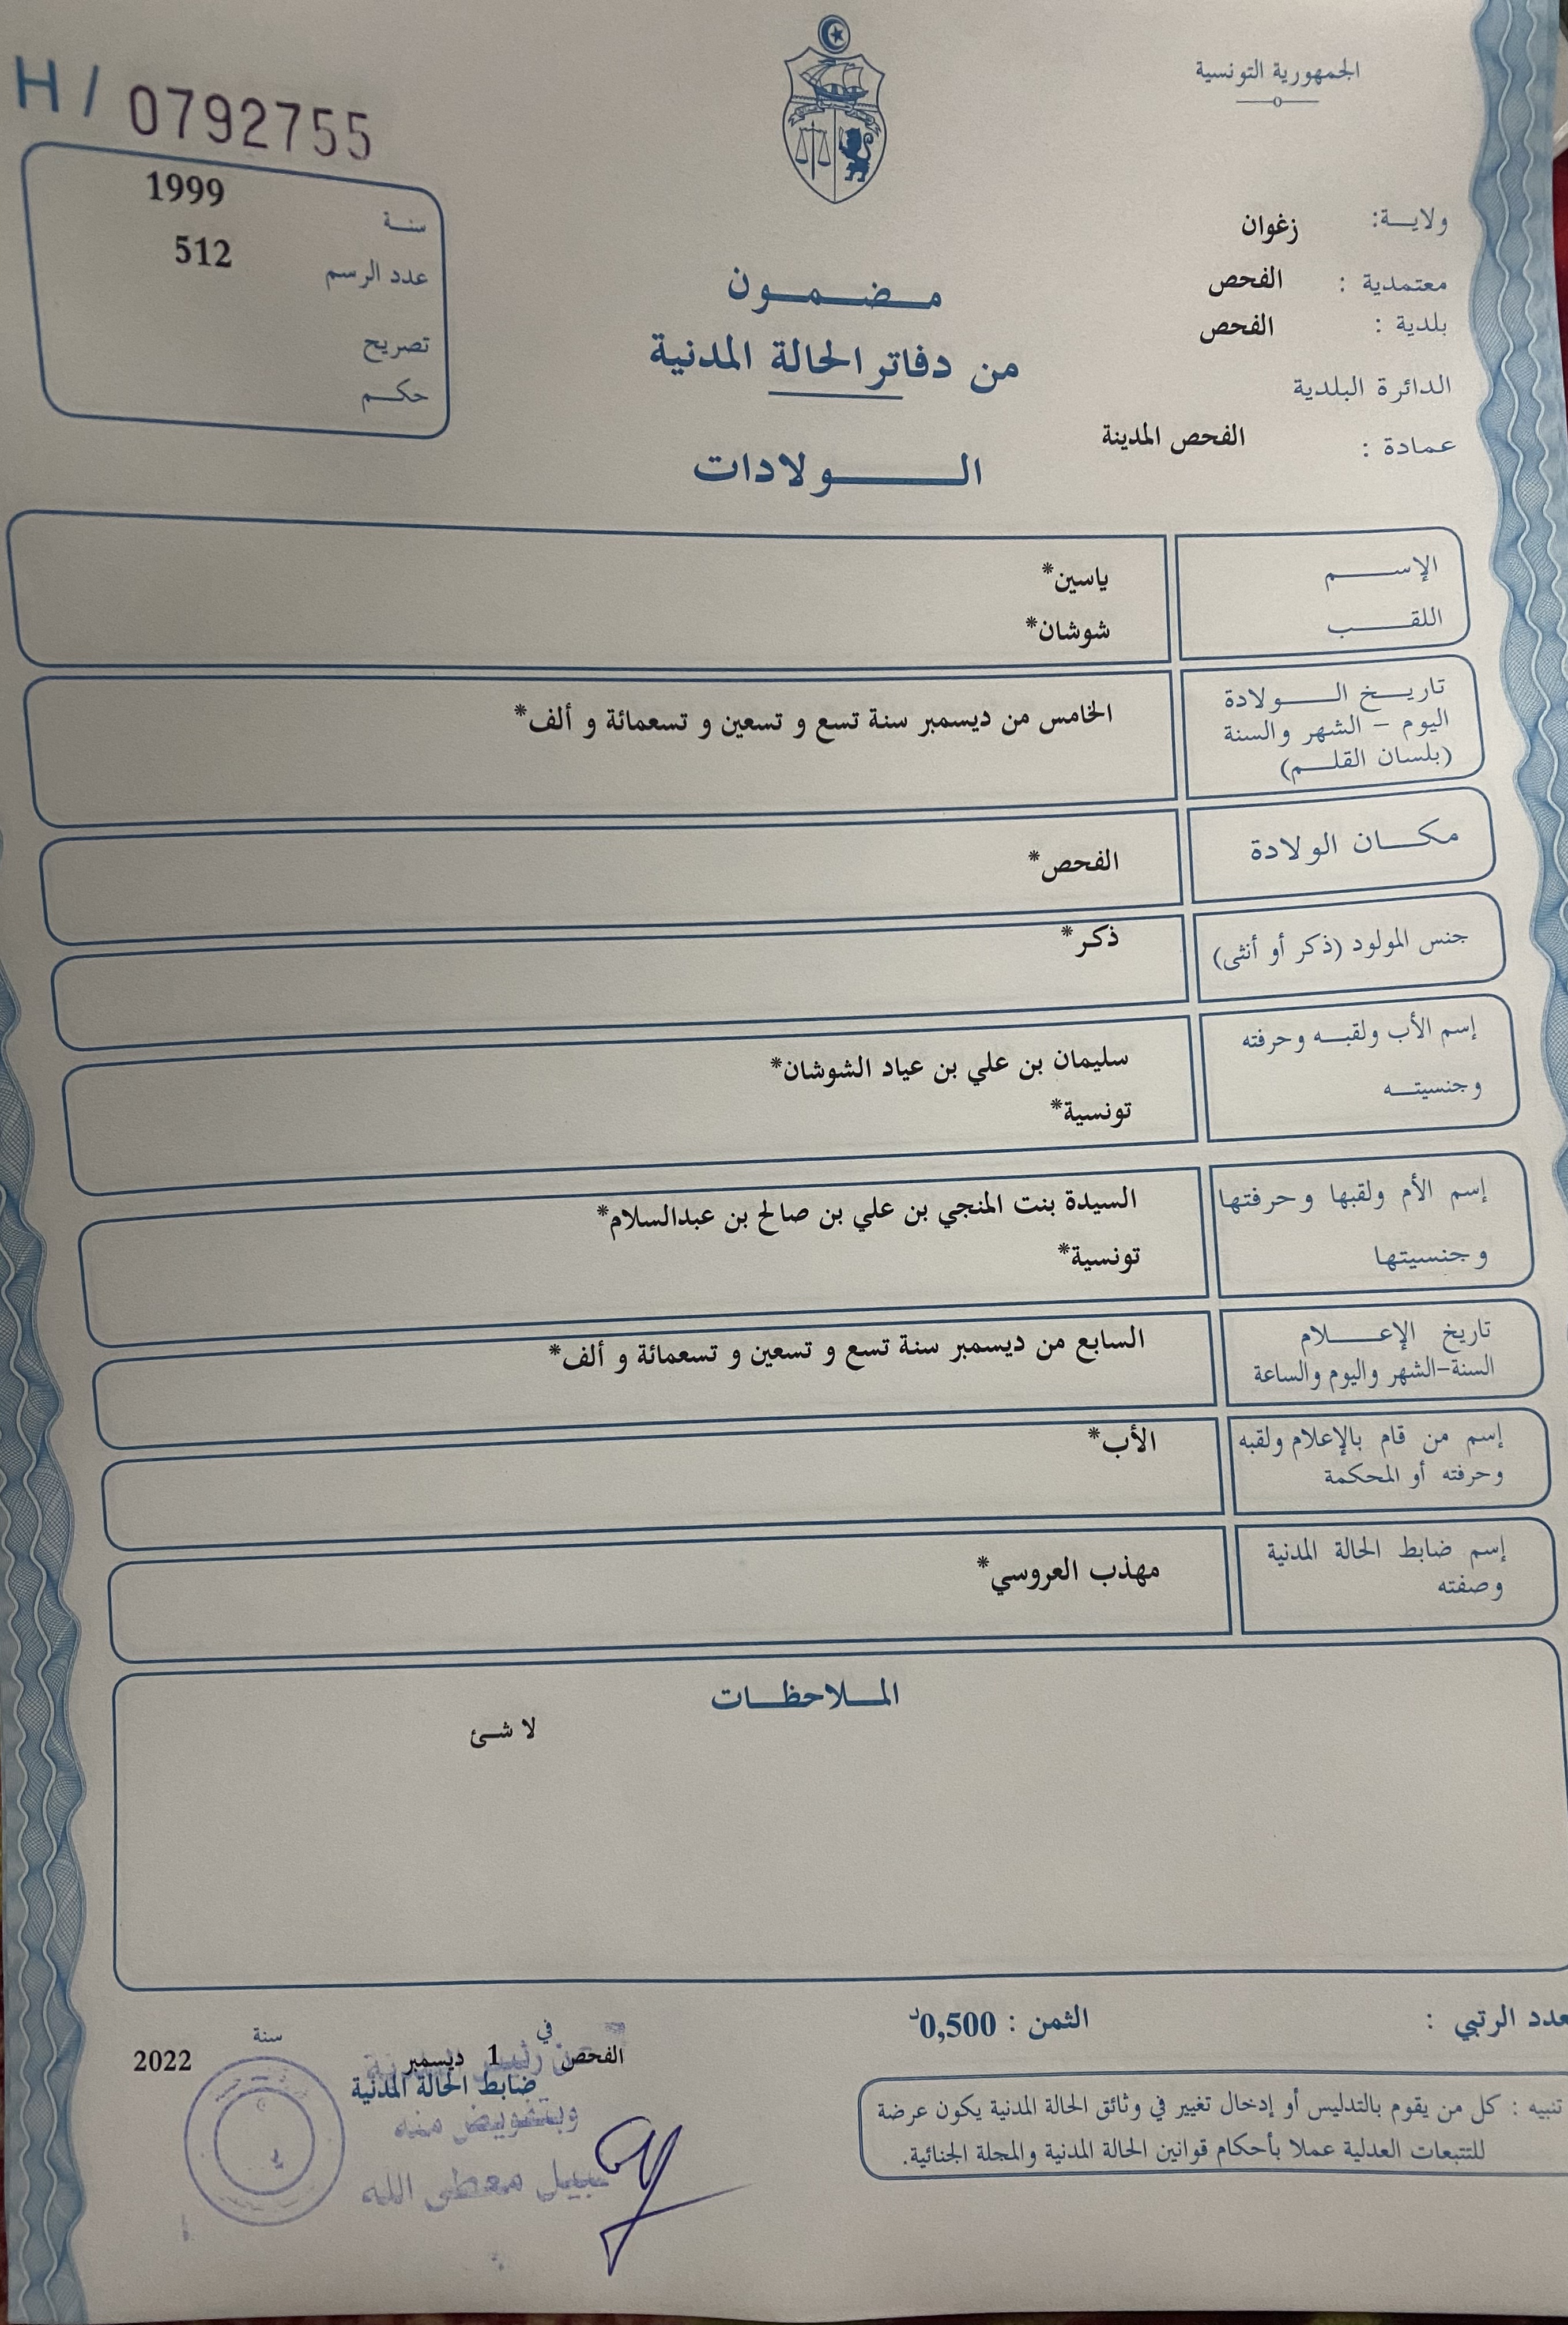 الجمهورية التونسية
H / 0792755
سنة 1999
عدد الرسم 512
تصريح
حكم
ولاية: زغوان
معتمدية : الفحص
بلدية : الفحص
الدائرة البلدية
عمادة : الفحص المدينة
مضمون
من دفاتر الحالة المدنية
الولادات
الإسم ياسين*
اللقب شوشان*
تاريخ الولادة
اليوم - الشهر والسنة
(بلسان القلم)
الخامس من ديسمبر سنة تسع و تسعين و تسعمائة و ألف*
مكان الولادة الفحص*
جنس المولود (ذكر أو أنثى) ذكر*
إسم الأب ولقبه وحرفته سليمان بن علي بن عياد الشوشان*
وجنسيته تونسية*
إسم الأم ولقبها وحرفتها السيدة بنت المنجي بن علي بن صالح بن عبدالسلام*
وجنسيتها تونسية*
تاريخ الإعلام السابع من ديسمبر سنة تسع و تسعين و تسعمائة و ألف*
السنة-الشهر واليوم والساعة
إسم من قام بالإعلام ولقبه الأب*
وحرفته أو المحكمة
إسم ضابط الحالة المدنية مهذب العروسي*
وصفته
الملاحظات
لا شئ
عدد الرتبي :
الثمن : 0,500د
تنبيه : كل من يقوم بالتدليس أو إدخال تغيير في وثائق الحالة المدنية يكون عرضة
للتتبعات العدلية عملا بأحكام قوانين الحالة المدنية والمجلة الجنائية.
الفحص في 1 ديسمبر سنة 2022
ضابط الحالة المدنية
وبتفويض منه
معطى الله